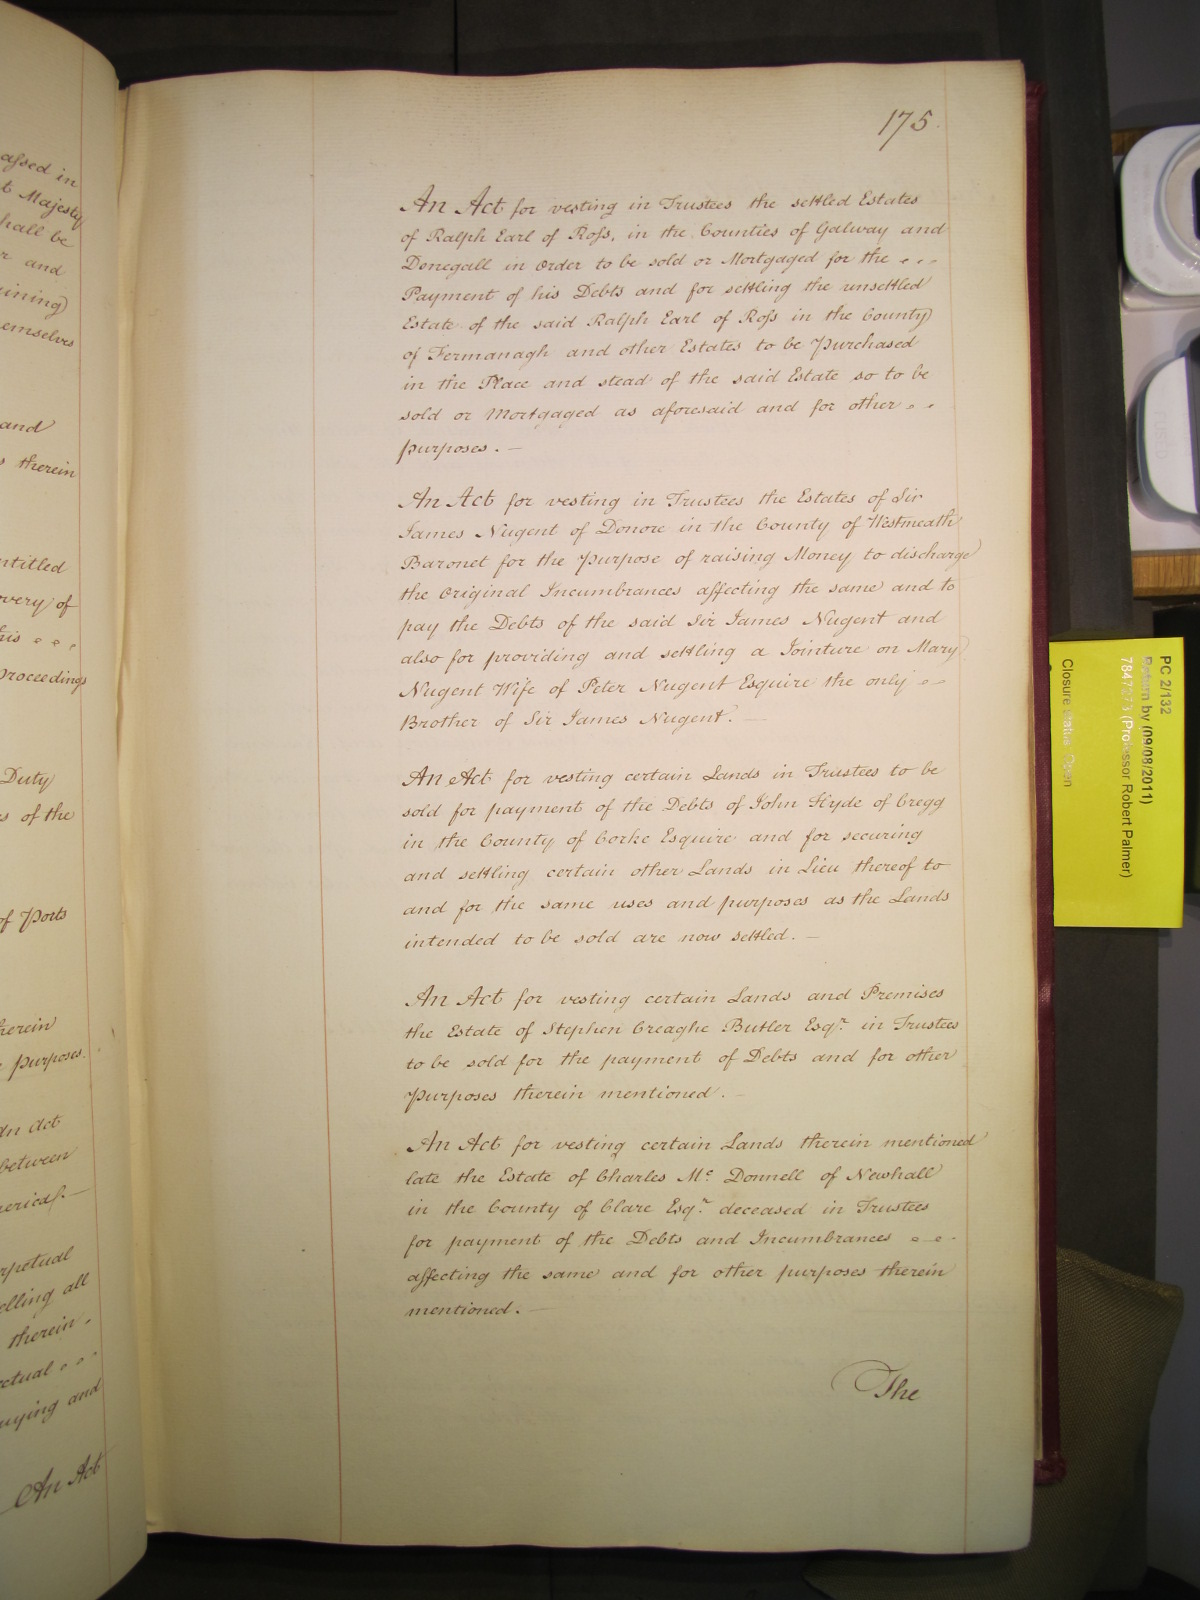 assed in
t Majesty
hall be
r and
ining
emselves
and
s therein
ntitled
overy of
his
Proceedings
Duty
s of the
of Ports
herein
purposes.
An Act
between
perpetual
elling all
therein
uying and
An Act
175.
An Act for vesting in Trustees the settled Estates
of Ralph Earl of Ross, in the Counties of Galway and
Donegall in order to be sold or Mortgaged for the
Payment of his Debts and for settling the unsettled
Estate of the said Ralph Earl of Ross in the County
of Fermanagh and other Estates to be Purchased
in the Place and stead of the said Estate so to be
sold or Mortgaged as aforesaid and for other
purposes. —
An Act for vesting in Trustees the Estates of Sir
James Nugent of Donore in the County of Westmeath
Baronet for the Purpose of raising Money to discharge
the Original Incumbrances affecting the same and to
pay the Debts of the said Sir James Nugent and
also for providing and settling a Jointure on Mary
Nugent Wife of Peter Nugent Esquire the only
Brother of Sir James Nugent. —
An Act for vesting certain Lands in Trustees to be
sold for payment of the Debts of John Hyde of Cregg
in the County of Corke Esquire and for securing
and settling certain other Lands in Lieu thereof to
and for the same uses and purposes as the Lands
intended to be sold are now settled. —
An Act for vesting certain Lands and Premises
the Estate of Stephen Creaghe Butler Esqr. in Trustees
to be sold for the payment of Debts and for other
Purposes therein mentioned. —
An Act for vesting certain Lands therein mentioned
late the Estate of Charles Mc Donnell of Newhall
in the County of Clare Esqr. deceased in Trustees
for payment of the Debts and Incumbrances
affecting the same and for other purposes therein
mentioned. —
The
PC 2/132
Return by (09/08/2011)
(Professor Robert Palmer)
Closure status: Open